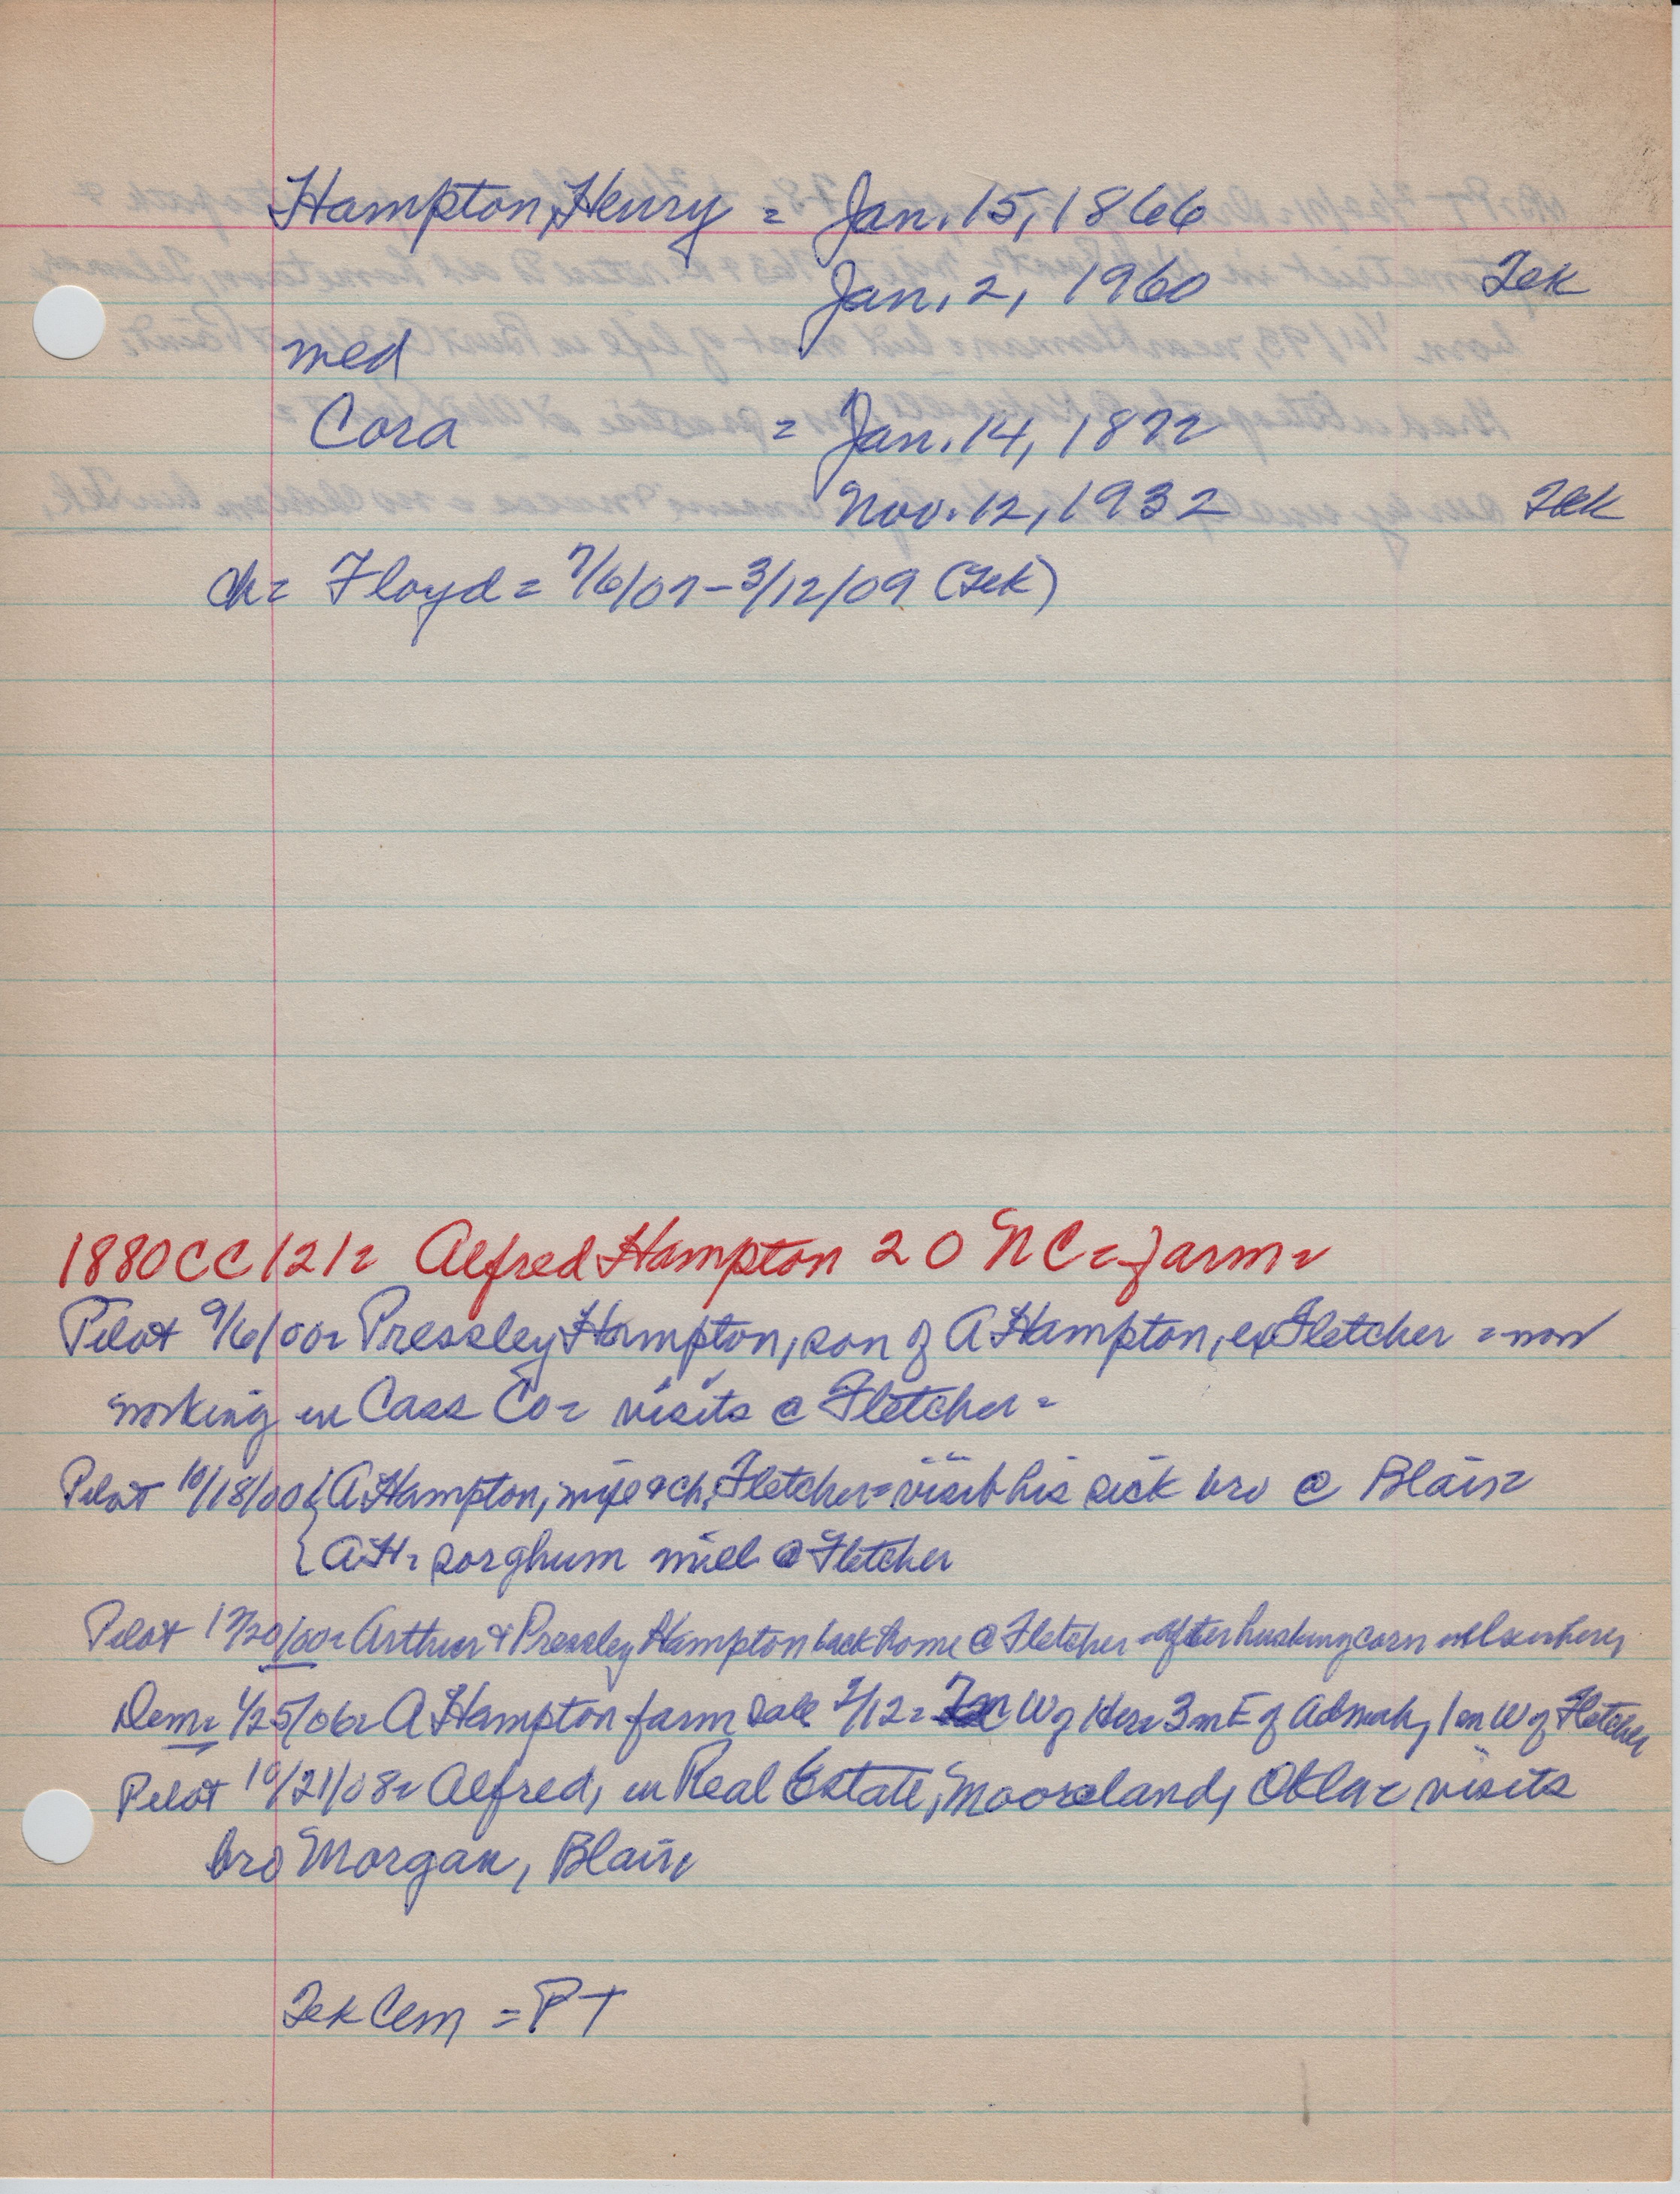 Hampton, Henry = Jan. 15, 1866
Jan. 2, 1960 Tek
med
Cora = Jan. 14, 1872
Nov. 12, 1932 Tek
ch = Floyd = 7/6/07 - 3/12/09 (Tek)
1880CC 121 = Alfred Hampton 20 NC = farm =
Pilot 9/6/00 = Pressley Hampton, son of A Hampton, ex Fletcher = now
working in Cass Co = visits @ Fletcher =
Pilot 10/18/00 { A Hampton, wife & ch, Fletcher = visit his sick bro @ Blair =
{ AH = sorghum mill @ Fletcher
Pilot 12/20/00 = Arthur & Pressley Hampton back home @ Fletcher = after husking corn elsewhere,
Dem = 1/25/06 = A Hampton farm sale 2/12 = W of Her = 3 m E of Admah, 1 m W of Fletcher
Pilot 10/21/08 = Alfred, in Real Estate, Mooreland, Okla = visits
bro Morgan, Blair,
Tek Cem = PT